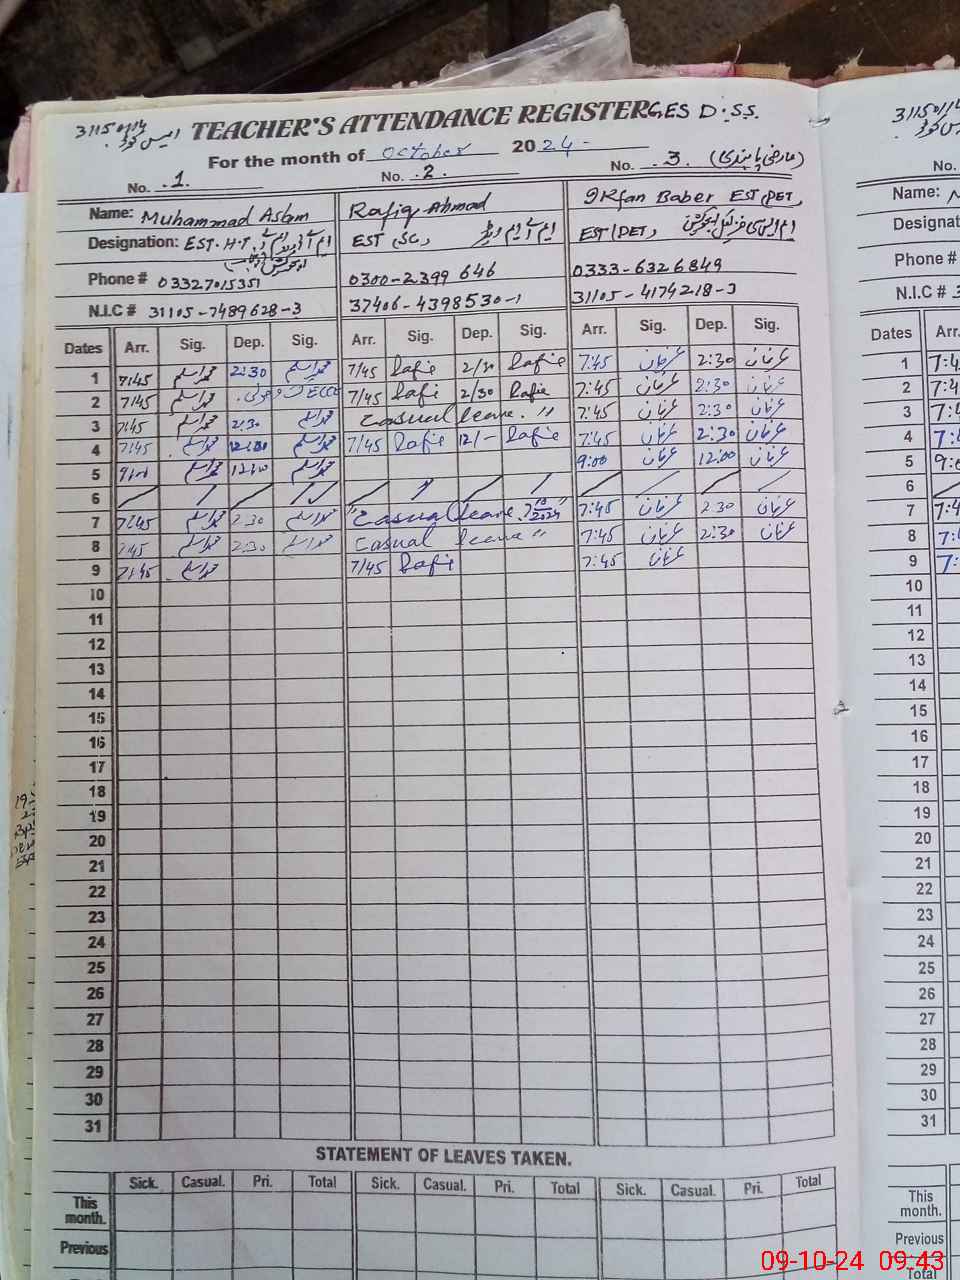 31150114 TEACHER'S ATTENDANCE REGISTER GES D.S.S.
ایمیس کوڈ
For the month of October 2024-
No. 1. No. 2. No. 3. (عارضی پابندی)
Name: Muhammad Aslam Rafiq Ahmad IRfan Baber EST(DET)
Designation: EST. H.T. EST (SC) EST(DET)
Phone # 03327015351 0300-2399 646 0333-6326849
N.I.C # 31105-7489628-3 37406-4398530-1 31105-4174218-3
Dates Arr. Sig. Dep. Sig. Arr. Sig. Dep. Sig. Arr. Sig. Dep. Sig.
1 7/45 محمد اسلم 2:30 محمد اسلم 7/45 Rafiq 2/30 Rafiq 7:45 عرفان 2:30 عرفان
2 7/45 محمد اسلم ECCE 7/45 Rafiq 2/30 Rafiq 7:45 عرفان 2:30 عرفان
3 7/45 محمد اسلم 2/30 محمد اسلم Casual leave. " 7:45 عرفان 2:30 عرفان
4 7/45 محمد اسلم 12:00 محمد اسلم 7/45 Rafiq 12/- Rafiq 7:45 عرفان 2:30 عرفان
5 محمد اسلم محمد اسلم 9:00 عرفان 12:00 عرفان
6
7 7:45 محمد اسلم 2:30 محمد اسلم "Casual leave. " 7:45 عرفان 2:30 عرفان
8 7:45 محمد اسلم 2:30 محمد اسلم Casual leave " 7:45 عرفان 2:30 عرفان
9 7:45 محمد اسلم 7/45 Rafiq 7:45 عرفان
10
11
12
13
14
15
16
17
18
19
20
21
22
23
24
25
26
27
28
29
30
31
STATEMENT OF LEAVES TAKEN.
Sick. Casual. Pri. Total Sick. Casual. Pri. Total Sick. Casual. Pri. Total
This
month.
Previous
Total
31150114
No.
Name:
Designat
Phone #
N.I.C # 3
Dates Arr.
1 7:4
2 7:4
3 7:4
4 7:
5 9:
6
7 7:4
8 7:
9 7:
10
11
12
13
14
15
16
17
18
19
20
21
22
23
24
25
26
27
28
29
30
31
This
month.
Previous
Total
09-10-24 09:43